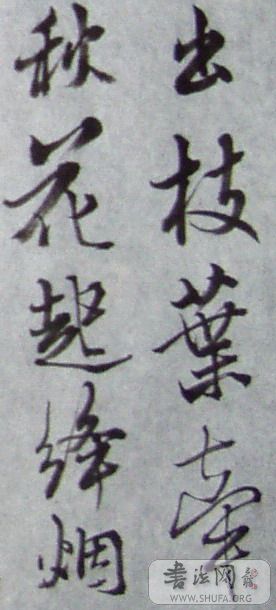 出枝葉牽
秋花起絳烟
书法网
WWW.SHUFA.ORG